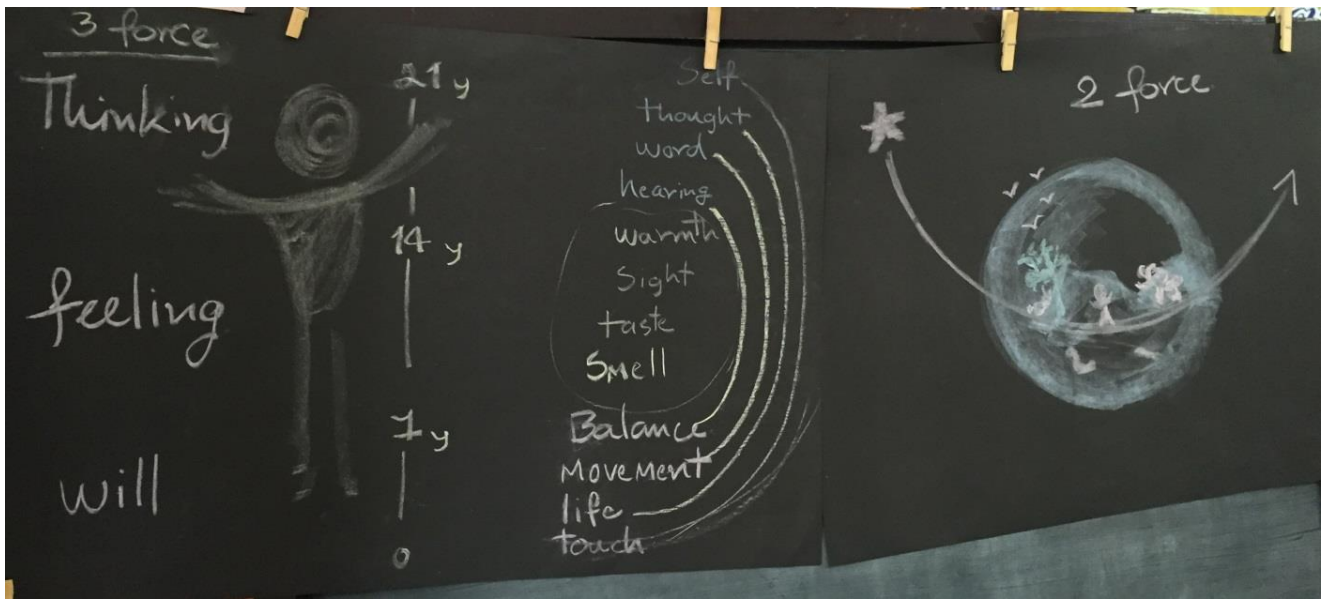 3 force
Thinking
feeling
will
21 y
14 y
7 y
0
Self
thought
word
hearing
warmth
Sight
taste
Smell
Balance
MOVEMENT
life
touch
2 force